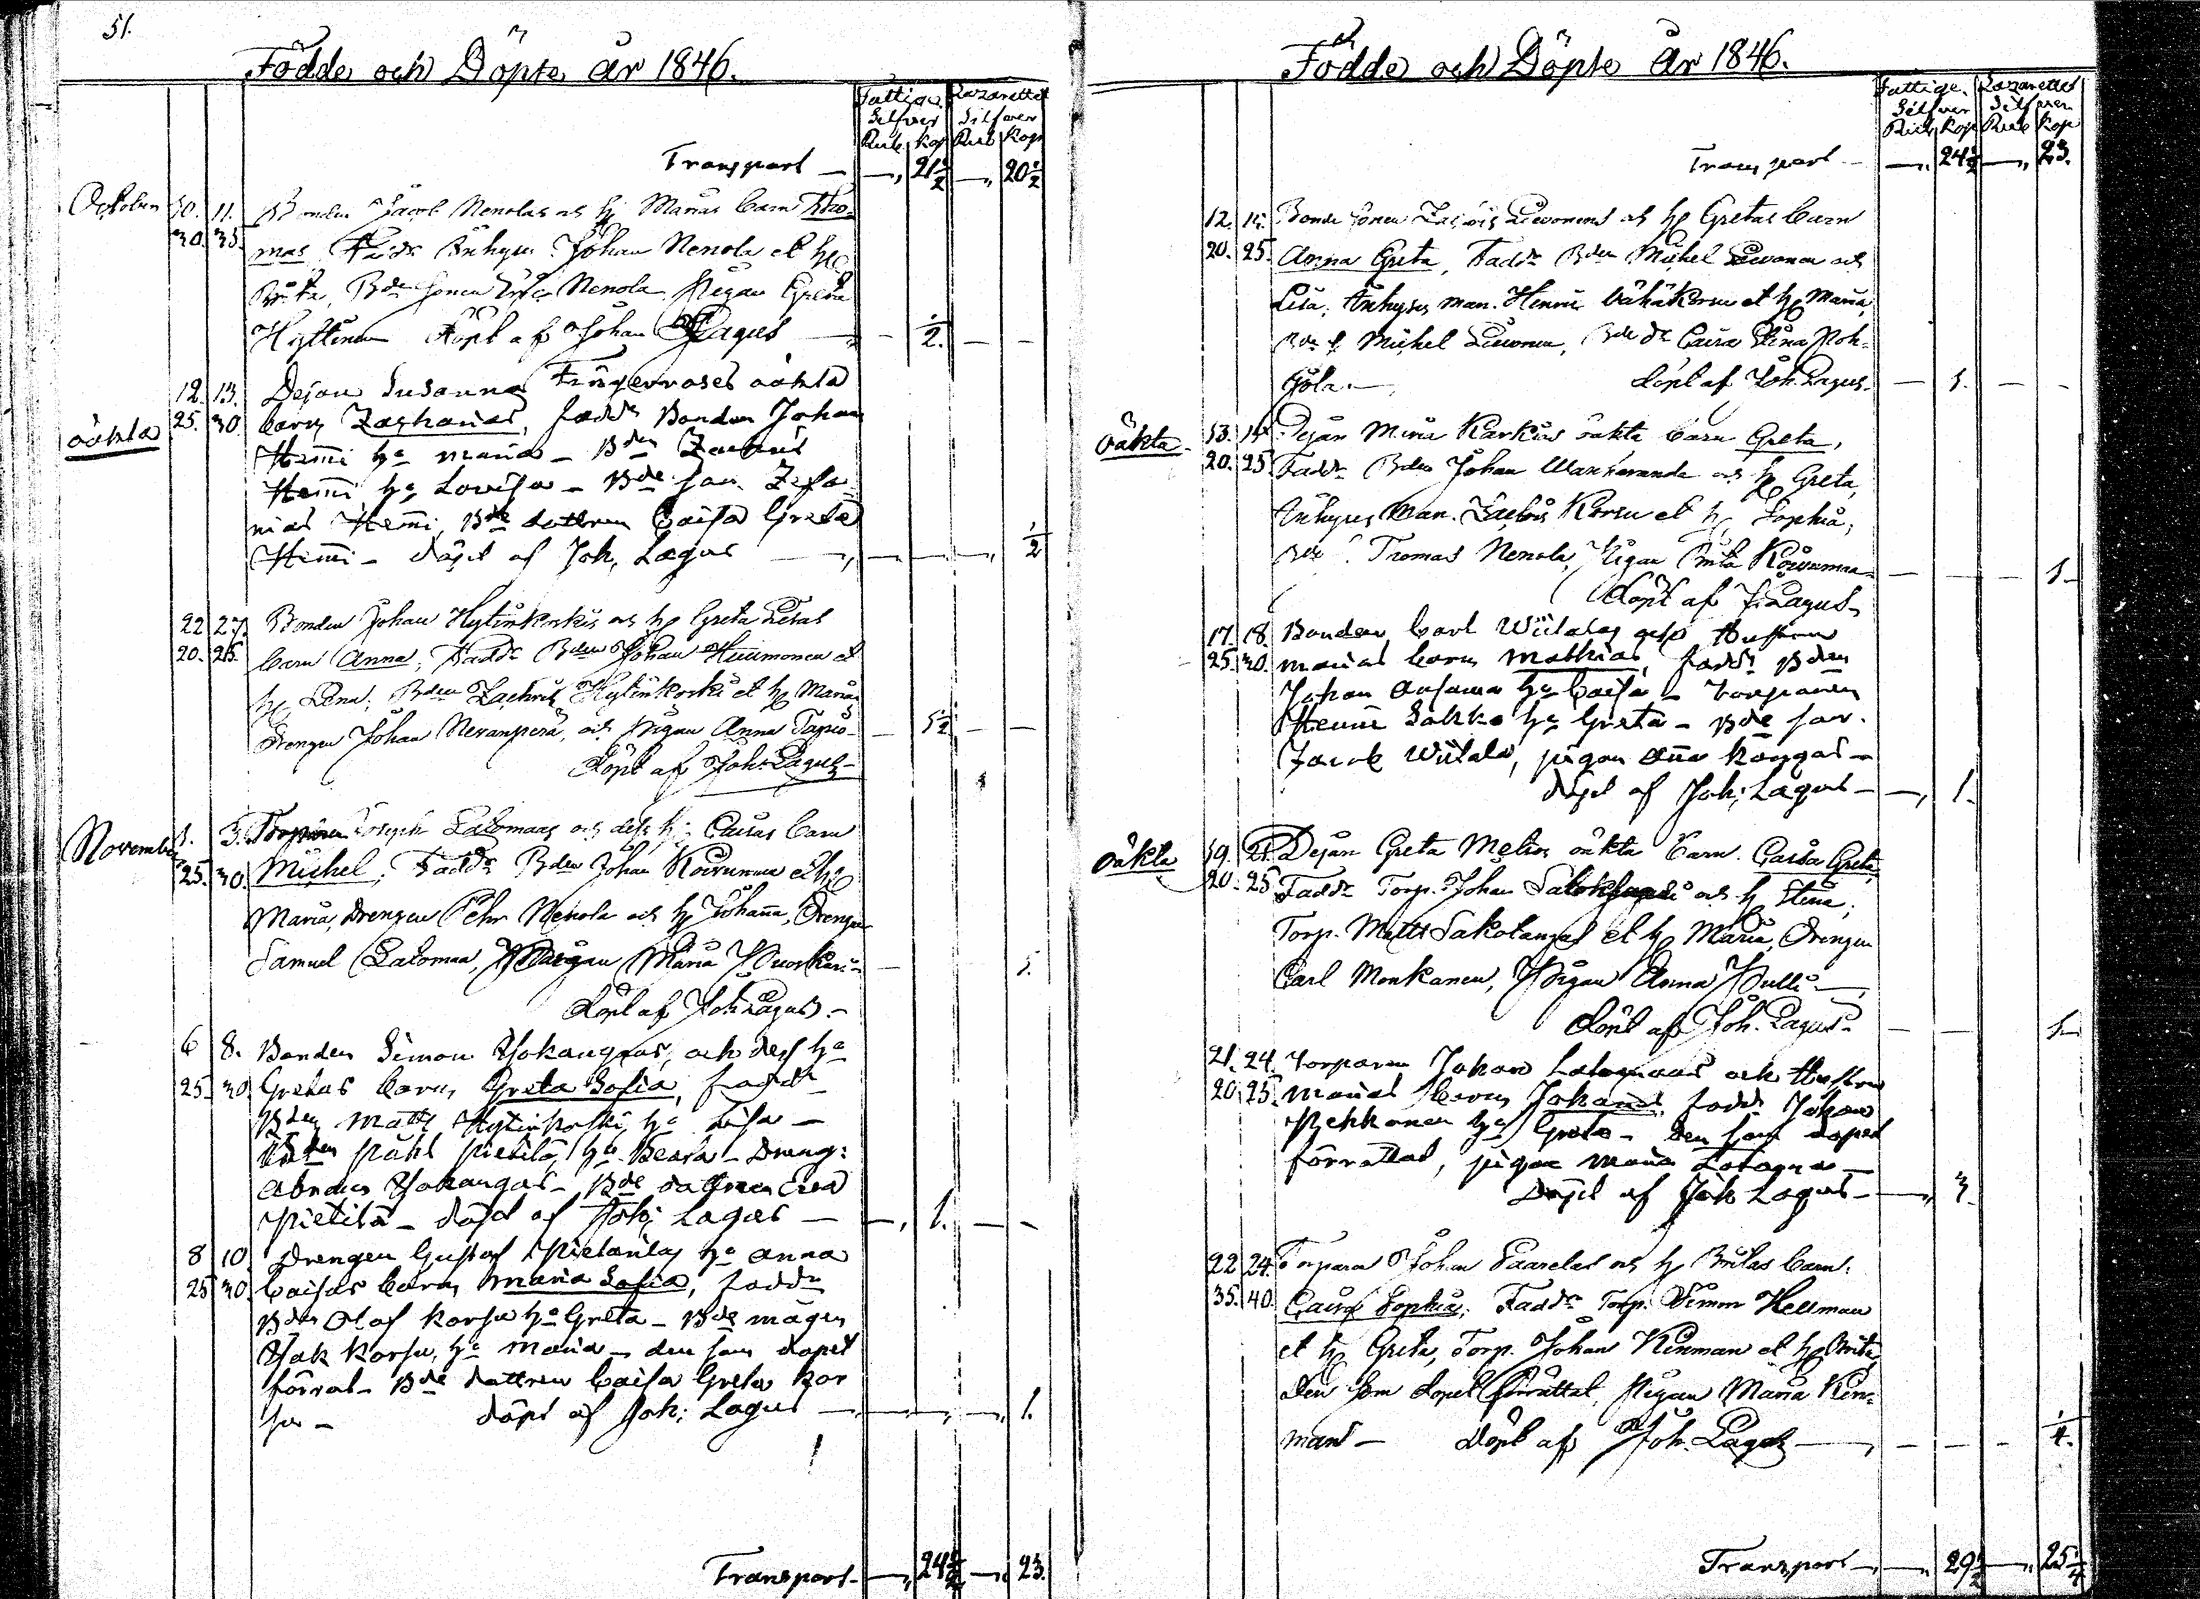 51.
Födde och Döpte År 1846.
Fattige Lazarettet
Silfver Silfver
Rub. Kop Rub Kop
Transport — 21½ — 20½
October 10. 11. Bonden Jacob Nenolas och h. Marias barn Tho-
30. 35. mas Fadd. Inhyses Johan Nenola et h.
Brita, Bde sonen Eric Nenola Pigan Greta
Hyttinen Döpt af Johan Lagus — ½ — —
12. 13. Dejan Susanna oäkta
oäkta 25. 30. barn Zacharias, fadd. Bonden Johan
Hemi h. Maria — Bden Zachris
Hemi h. Lovisa — Bde son Zefa-
nias Hemi, Bde dottren Caisa Greta
Hemi — döpt af Joh. Lagus — ½
22 27. Bonden Johan Hytinkoskis och h. Greta Lisas
20. 25. barn Anna, Fadd. Bden Johan et
h. Lena, Bden Zachris Hytinkoski et h. Maria
Drengen Johan Nevanperä, och Pigan Anna Tapio — 5½ — —
Döpt af Joh. Lagus —
November 1. 3. Torparen Joseph Latomaas och dess h. Caisas barn
25. 30. Michel, Fadd. Bden Johan Koivumaa et h.
Maria, Drengen Pehr Nenola och h. Johanna, Drengen
Samuel Latomaa, Pigan Maria — 1.
Döpt af Joh. Lagus. —
6 8. Bonden Simon Yokangas, och dess h.
25. 30. Gretas barn, Greta Sofia, fadd.
Bden Matts Hytinkoski h. Lisa —
Bden Påhl Pietilä, h. Beata — Dreng:
Yokangas — Bde dottren Eva
Pietilä — döpt af Joh: Lagus — 1. — —
8 10 Drengen Gustaf Pietarilas h. Anna
25 30 Caisas barn, Maria Sofia, fadd.
Bden Olof Korsu h. Greta — Bde mågen
Isak Korsu, h. Maria — den som döpet
förrat — Bde dottren Caisa Greta Kor
su — döpt af Joh: Lagus — 1.
Transport — 24½ — 23.
Födde och Döpte År 1846.
Fattige Lazarettet
Silfver Silfver
Rub Kop Rub Kop
Transport — 24½ — 23.
12. 15. Bonde sonen Zachris Liewonens och h. Gretas barn
20. 25. Anna Greta, Fadd. Bden Michel Liewonen och
Lisa, Inhyses man. Henric Vähäkorsu et h. Maria,
Michel Liewonen, Bde dr Caisa Stina Poh-
jola. — Döpt af Joh. Lagus. — 1. — —
oäkta 13. 15. Dejan Mina Karkus oäkta barn Greta,
20. 25 Fadd. Bden Johan och h. Greta,
Inhyses Man. Zachris Korsu et h. Sophia,
Bde s. Thomas Nenola, Pigan Brita Koivumaa — 1 —
Döpt af J. Lagus —
17. 18. Bonden Carl Wiitalas och Hustrun
25. 30. Marias barn Mathias, fadd. Bden
Johan h. Caisa — Torparen
Henric Sakko h. Greta — Bde son.
Jacob Wiitala, pigan Anna Kangas —
döpt af Joh: Lagus — 1.
oäkta 19. 21. Dejan Greta oäkta Barn. Caisa Greta
20. 25 Fadd. Torp. Johan och h. Stina,
Torp. Matts Sakokangas et h. Maria, Drengen
Carl Monkanen, Pigan Anna Pulli —
Döpt af Joh. Lagus — 1 —
21. 24. Torparen Johan Latomaas och Hustrun
20. 25. Marias barn Johannes, fadd. Johan
Pehkonen h. Greta — den som döpet
förrattat, pigan Maria Latomaa —
Döpt af Joh Lagus — 3.
22 24. Torparen Johan Saarelas och h. Britas barn.
35. 40. Caisa Sophia, Fadd. Torp. Simon Hellman
et h. Greta, Torp. Johan Kinman et h. Brita,
den som döpet förrättat, Pigan Maria Kin-
man — Döpt af Joh. Lagus — ¼.
Transport — 29½ — 25¼